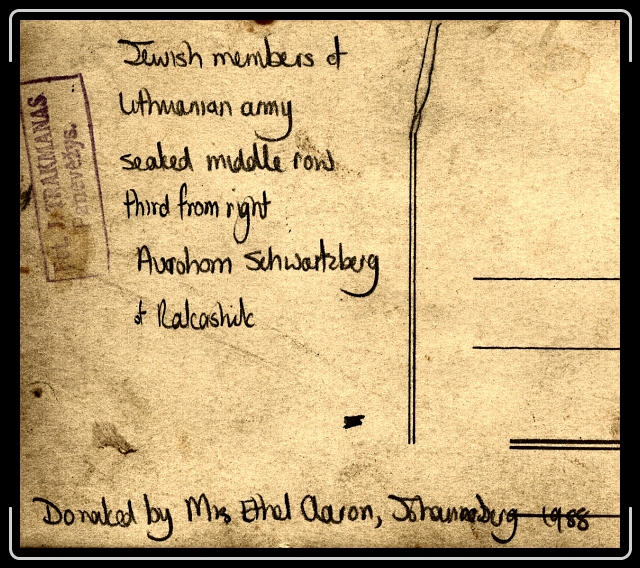 Jewish members of
Lithuanian army
seated middle row
third from right
Avrohom Schwartzberg
of Rakashik
Fot. J. TRAKMANAS
Panevėžys.
Donated by Mrs Ethel Aaron, Johannesberg 1988